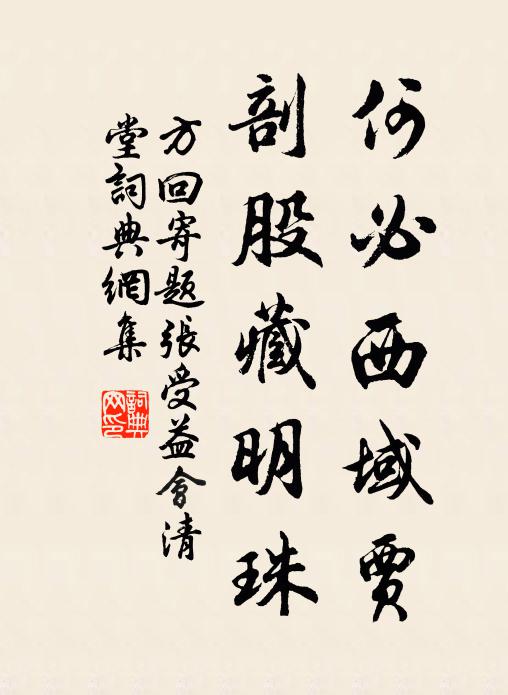 何必西域賈
剖股藏明珠
方回寄題張受益會清
堂詞典網集
詞典
网印